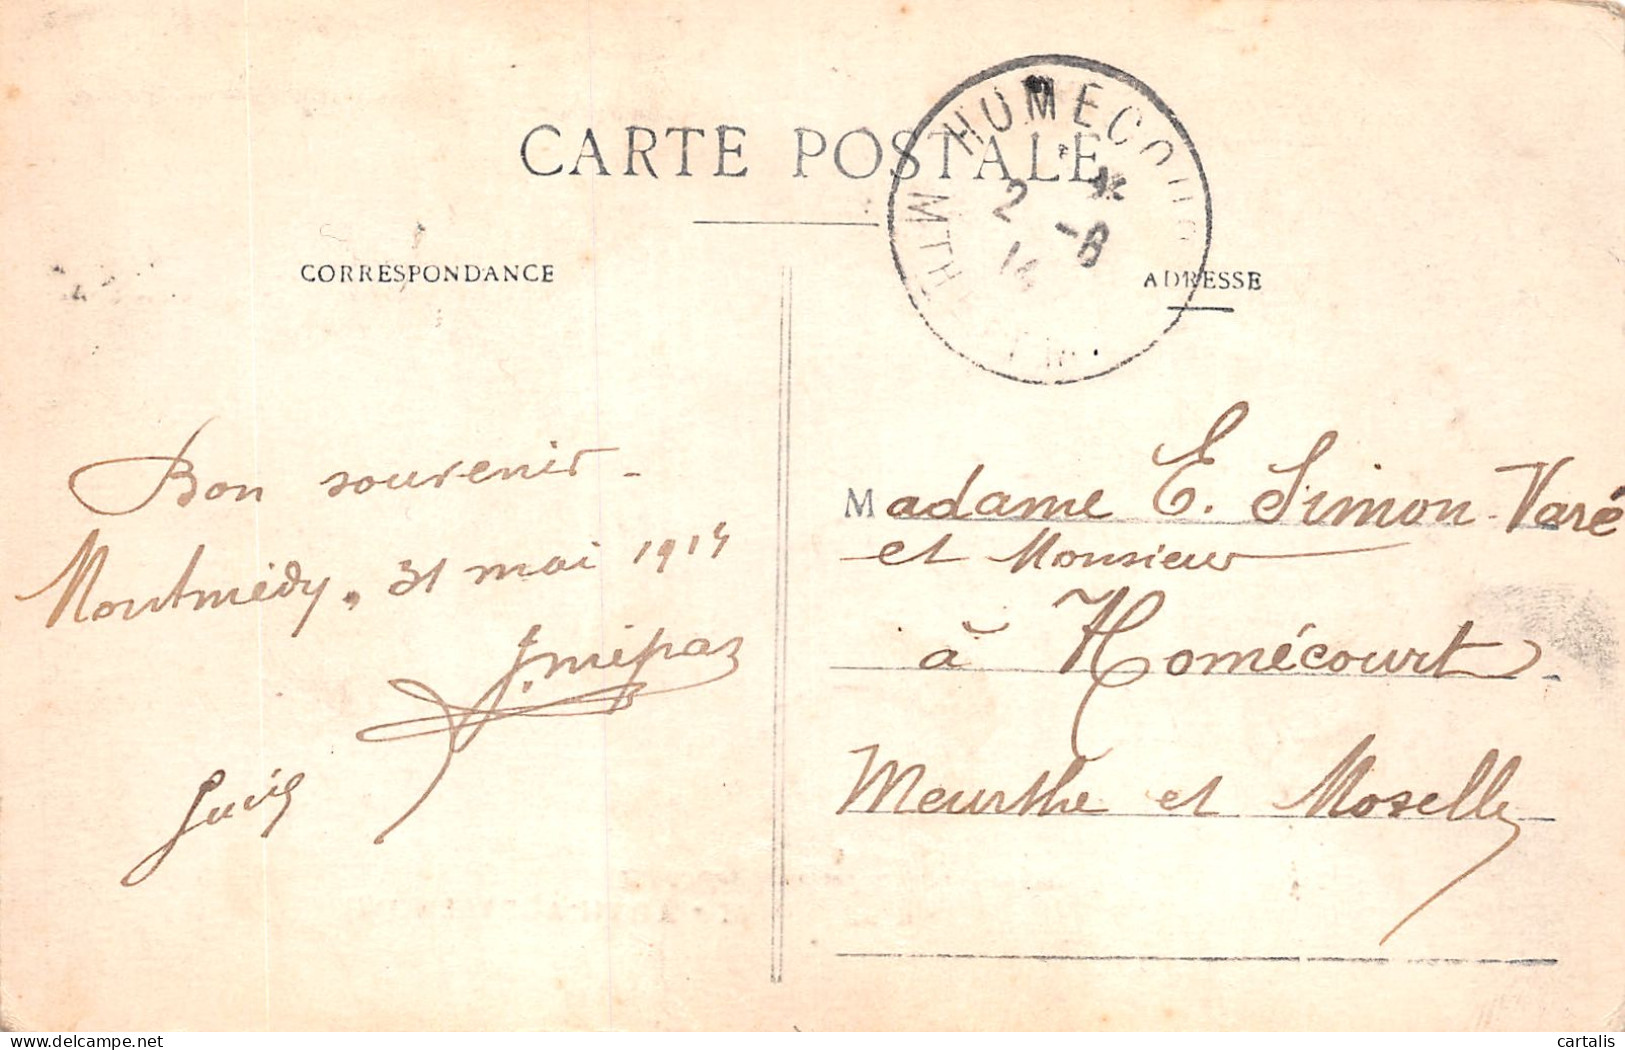 CARTE POSTALE
HOMECOUR
2 -6
14
MTHE
CORRESPONDANCE
ADRESSE
Bon souvenir
Montmédy, 31 mai 1914
Madame E. Simon-Varé
et Monsieur
à Homécourt
Meurthe et Moselle
cartalis
delcampe.net